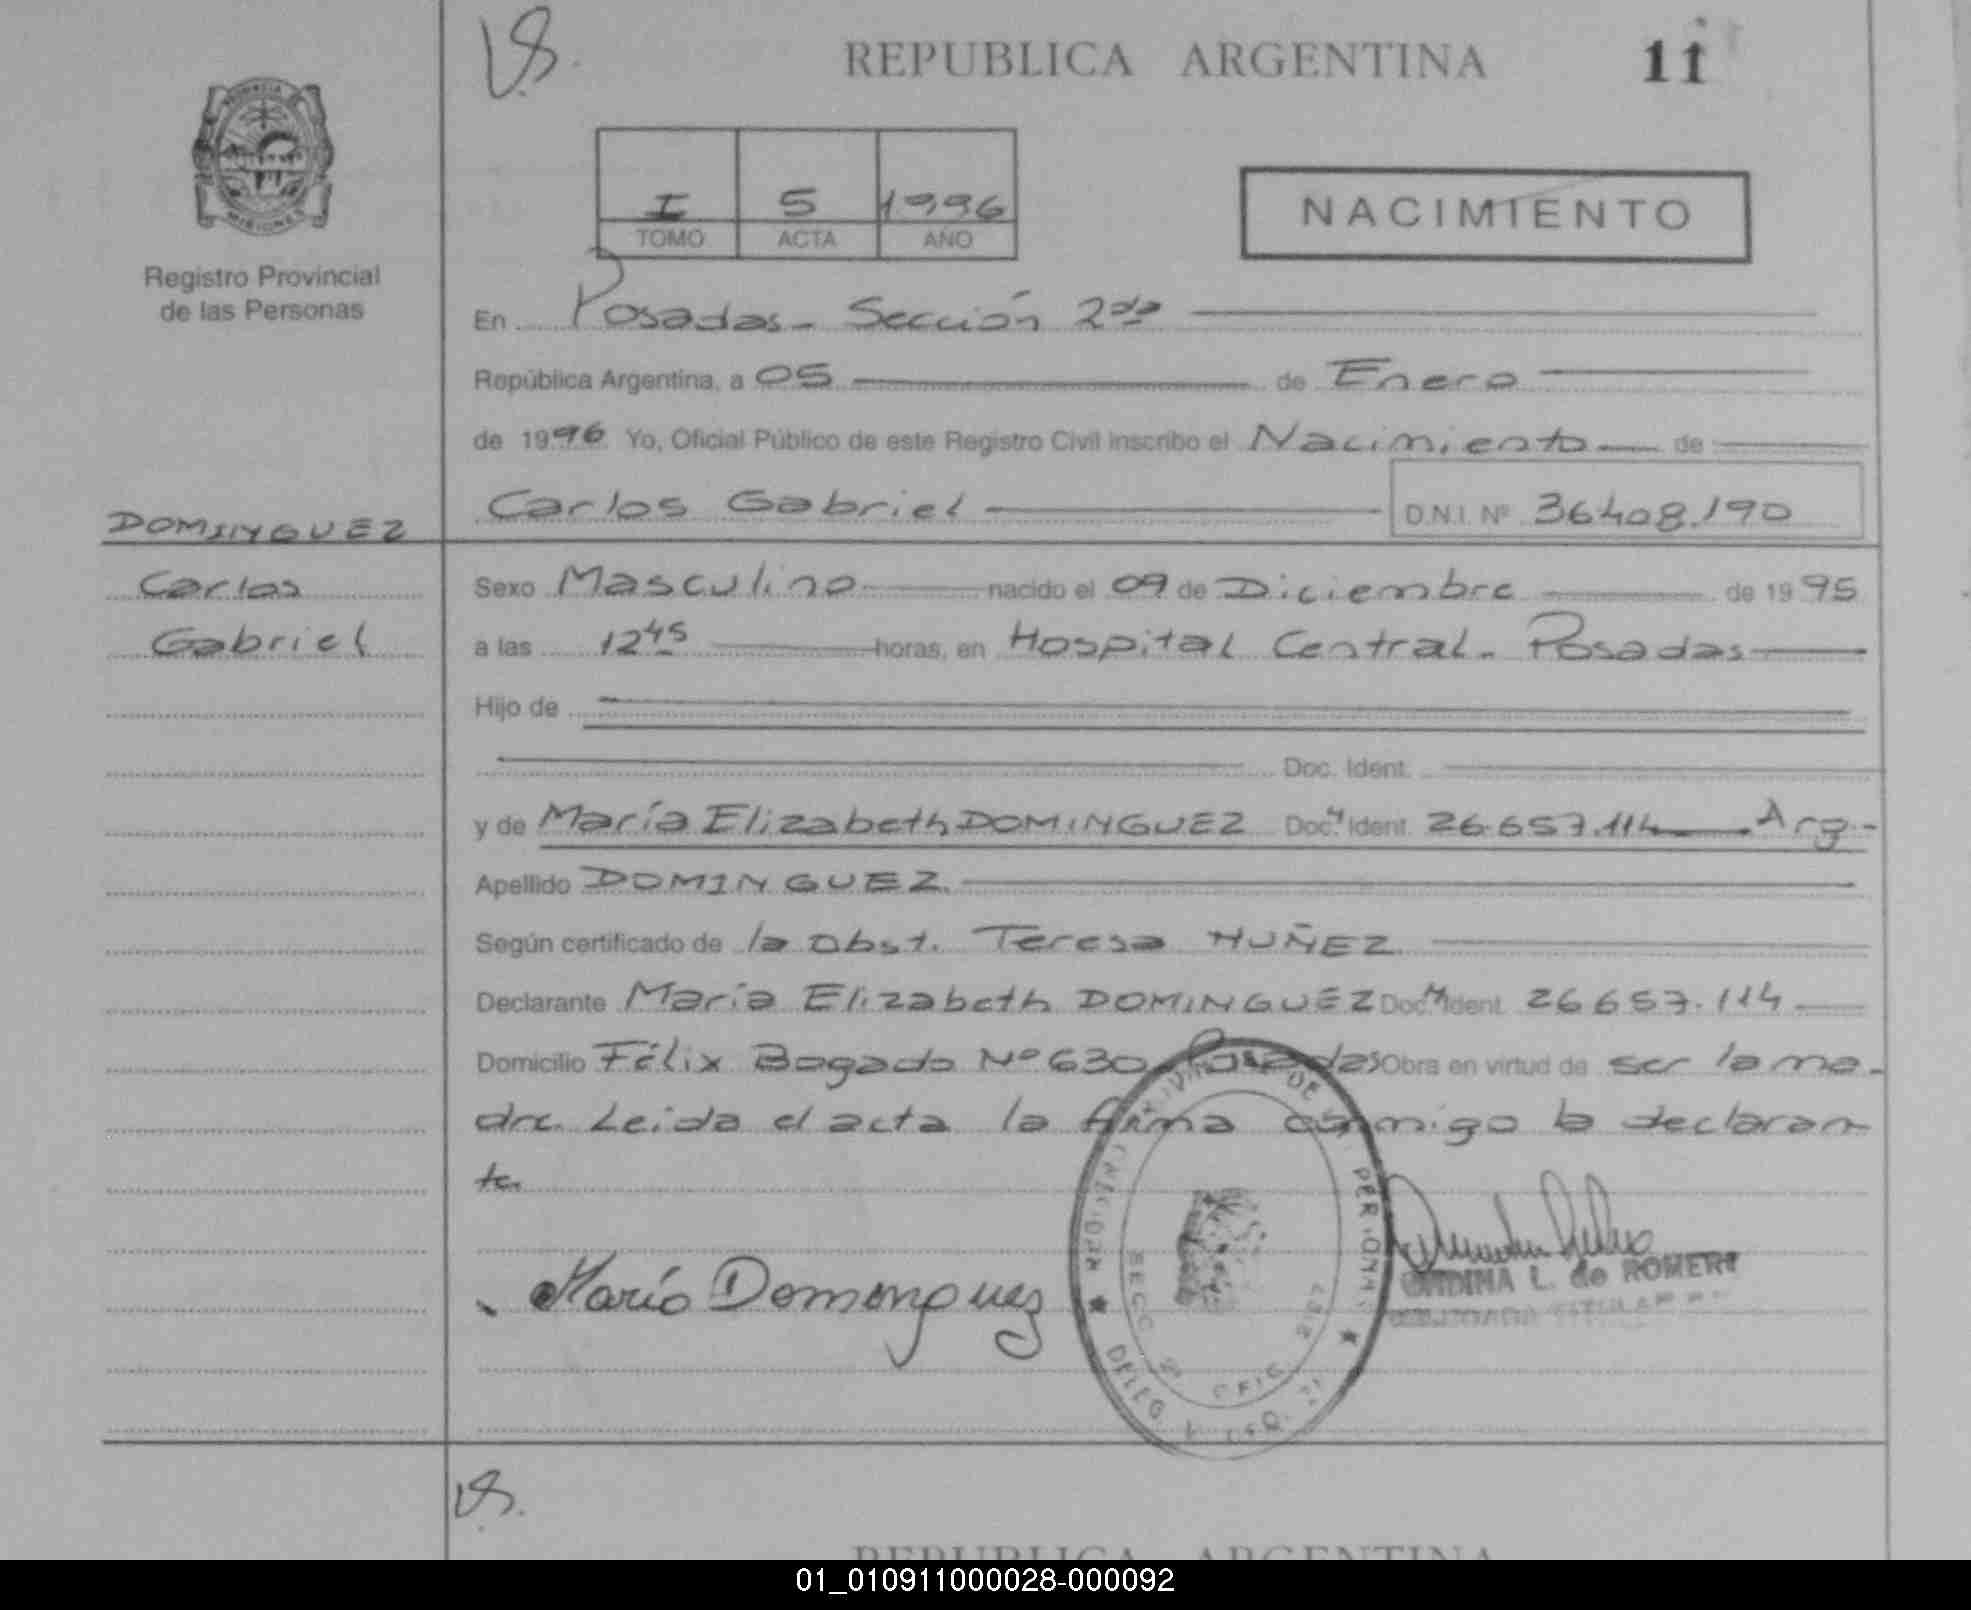 VS.
REPUBLICA ARGENTINA 11
PROVINCIA DE
MISIONES
Registro Provincial
de las Personas
I 5 1996
TOMO ACTA AÑO
NACIMIENTO
En Posadas - Sección 2da
República Argentina, a 05 de Enero
de 1996 Yo, Oficial Público de este Registro Civil inscribo el Nacimiento de
DOMINGUEZ Carlos Gabriel D.N.I. Nº 36408.190
Carlos Sexo Masculino nacido el 09 de Diciembre de 1995
Gabriel a las 12 45 horas, en Hospital Central - Posadas
Hijo de
Doc. Ident.
y de María Elizabeth DOMINGUEZ Doc. Ident. 26.657.114 Arg.
Apellido DOMINGUEZ
Según certificado de la obst. Teresa NUÑEZ
Declarante María Elizabeth DOMINGUEZ Doc. Ident. 26657.114
Domicilio Félix Bogado Nº 630 Posadas Obra en virtud de ser la ma-
dre. Leida el acta la firma conmigo la declaran-
te.
María Dominguez
DE PERSONAS
SECC 2ª OFIC
DELEG.
L. de ROMERO
TITULAR
REPUBLICA ARGENTINA
01_010911000028-000092